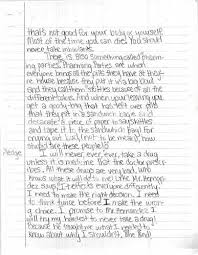 that's not good for your body or yourself
Most of the time you can die! You should
never take
There is also something called pharm-
ing parties. Pharming parties are when
everyone brings all the pills they have at their
house because they put it in a big bowl
and they call them because of all the
different colors. And when your leaving you
get a goody bag that has left over pills
that they put in a sandwich bag and
decorate a piece of paper to say thanks
and tape it to the sandwich bag! For
crying out loud (not to be mean), how
stupid are these people!
Pledge I will never, ever, ever, take a drug
unless it is medicine that the doctor gave
me. All these drugs are very bad, who
knows what it will do to me. Mr. Hernan-
dez says it effects everyone differently.
I need to make the right decision. I need
to think twice before I make the wron-
g choice. I promise to Mr. Hernandez I
will try my hardest to never take a drug
because he taught me what I needed to
know about why I shouldn't. The End!